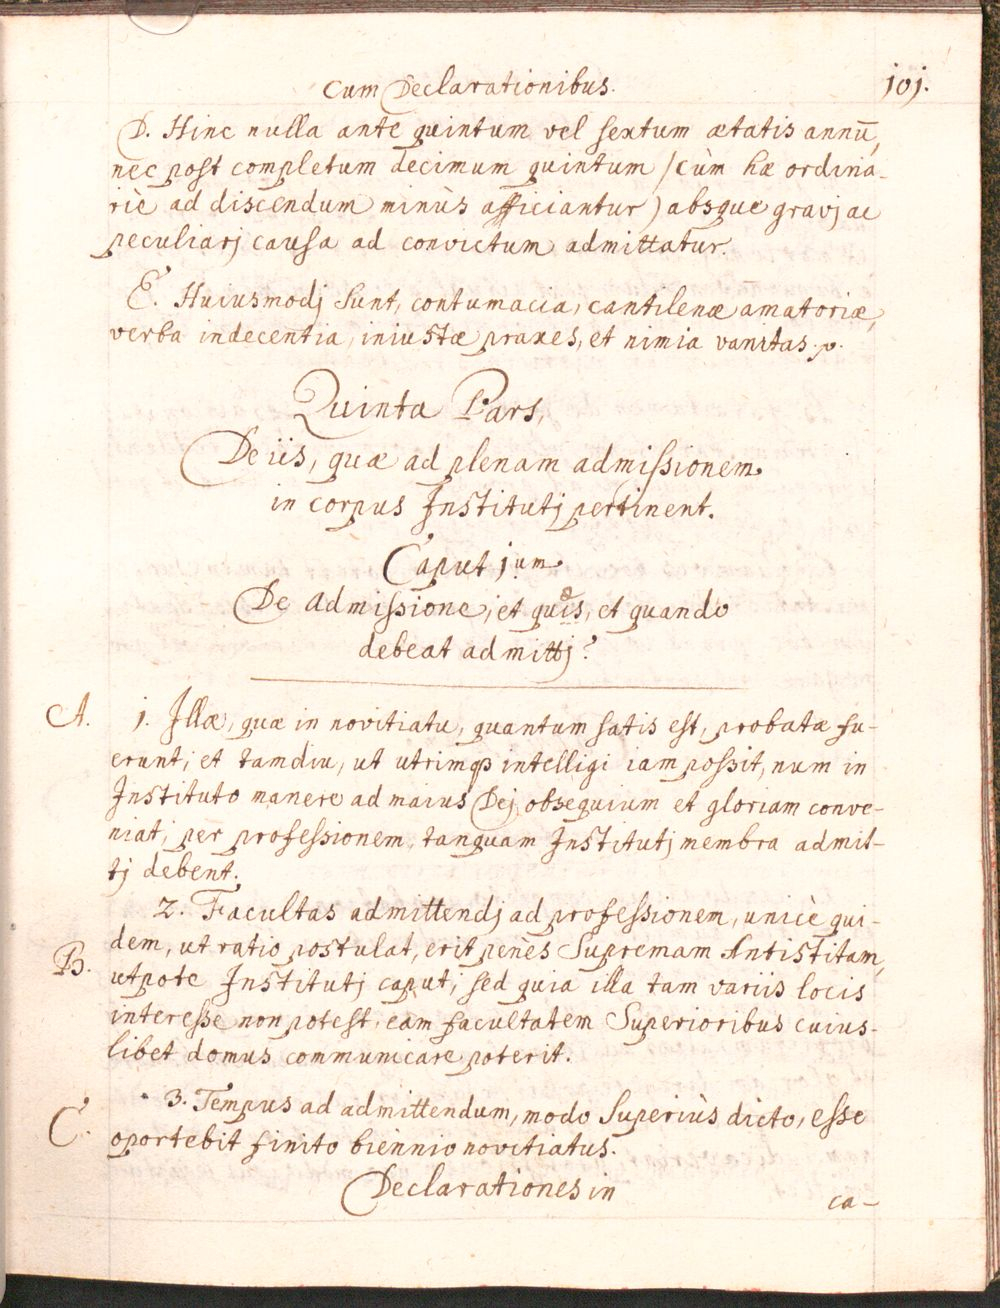 Cum Declarationibus. 101.
D. Hinc nulla ante quintum vel sextum ætatis annū,
nec post completum decimum quintum (cùm hæ ordina-
riè ad discendum minùs afficiantur) absque gravj ac
peculiarj causa ad convictum admittatur.
E. Huiusmodj sunt, contumacia, cantilenæ amatoriæ,
verba indecentia, iniustæ praxes, et nimia vanitas.
Quinta Pars,
De iis, quæ ad plenam admissionem
in corpus Institutj pertinent.
Caput jum
De admissione, et quis, et quando
debeat admittj?
A. 1. Illæ, quæ in novitiatu, quantum satis est, probatæ fu-
erunt, et tamdiu, ut utrimq3 intelligi iam possit, num in
Instituto manere ad maius Dej obsequium et gloriam conve-
niat, per professionem, tanquam Institutj membra admit-
tj debent.
2. Facultas admittendj ad professionem, unicè qui-
dem, ut ratio postulat, erit penès Supremam Antistitam,
B. utpote Institutj caput, sed quia illa tam variis locis
interesse non potest, eam facultatem Superioribus cuius-
libet domus communicare poterit.
C. 3. Tempus ad admittendum, modo superiùs dicto, esse
oportebit finito biennio novitiatus.
Declarationes in
ca-